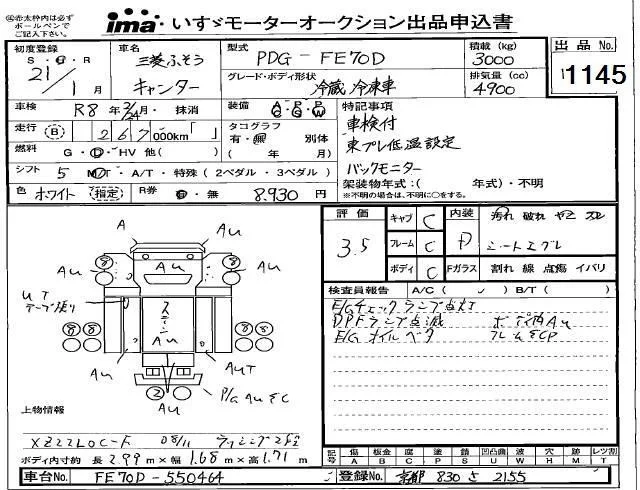 ㊟赤太枠内は必ず
ボールペンで
ご記入下さい。
ima いすゞモーターオークション出品申込書
初度登録
S・Ⓗ・R
21/1月
車名
三菱ふそう
キャンター
型式
PDG-FE70D
グレード・ボディ形状
冷蔵冷凍車
積載(kg)
3000
排気量(cc)
4900
出品No.
1145
車検
R8年3/24月・抹消
装備
A・P・P
C・S・W
特記事項
車検付
東プレ低温設定
バックモニター
架装物年式:( 年式)・不明
※不明の場合は、不明に○をする。
走行
(B) 267,000km「 」
タコグラフ
有・無 別体
( 年 月)
燃料
G・D・HV 他( )
シフト
5 MT・A/T・特殊(2ペダル・3ペダル)
色
ホワイト(指定)
R券
有・無 8,930円
A
Au
8
UT
テープ張り
ステン
Au
AuT
P/G Au EC
2
評価
3.5
キャブ C
フレーム C
ボディ C
内装 D
汚れ 破れ ヤニ スレ
シートエグレ
Fガラス
割れ 線 点傷 イバリ
検査員報告 A/C( ✓ ) B/T( )
E/Gチェックランプ点灯
DPFランプ点滅 ボディ内Au
E/Gオイルベタ フレームECP
上物情報
XZ22LOC-F 08/11
ボディ内寸約 長2.99m×幅1.68m×高1.71m
記号
傷 A
鈑金 B
腐 C
塗 P
錆 S
凹凸凸凹 U
波 W
穴 H
跡 M
レツ割 T
車台No. FE70D-550464
登録No. 京都 830 さ 2155